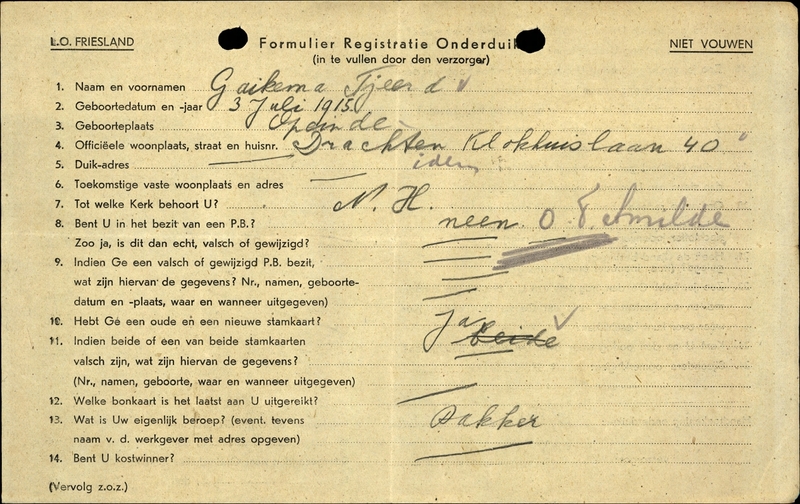 L.O. FRIESLAND
Formulier Registratie Onderduik
NIET VOUWEN
(in te vullen door den verzorger)
1. Naam en voornamen Gaikema Tjeerd
2. Geboortedatum en -jaar 3 Juli 1915
3. Geboorteplaats Opeinde
4. Officiëele woonplaats, straat en huisnr. Drachten Klokhuislaan 40
5. Duik-adres idem
6. Toekomstige vaste woonplaats en adres
7. Tot welke Kerk behoort U? N. H.
8. Bent U in het bezit van een P.B.? neen
Zoo ja, is dit dan echt, valsch of gewijzigd?
9. Indien Ge een valsch of gewijzigd P.B. bezit,
wat zijn hiervan de gegevens? Nr., namen, geboorte-
datum en -plaats, waar en wanneer uitgegeven)
10. Hebt Ge een oude en een nieuwe stamkaart? Ja beide
11. Indien beide of een van beide stamkaarten
valsch zijn, wat zijn hiervan de gegevens?
(Nr., namen, geboorte, waar en wanneer uitgegeven)
12. Welke bonkaart is het laatst aan U uitgereikt?
13. Wat is Uw eigenlijk beroep? (event. tevens Bakker
naam v. d. werkgever met adres opgeven)
14. Bent U kostwinner?
(Vervolg z.o.z.)